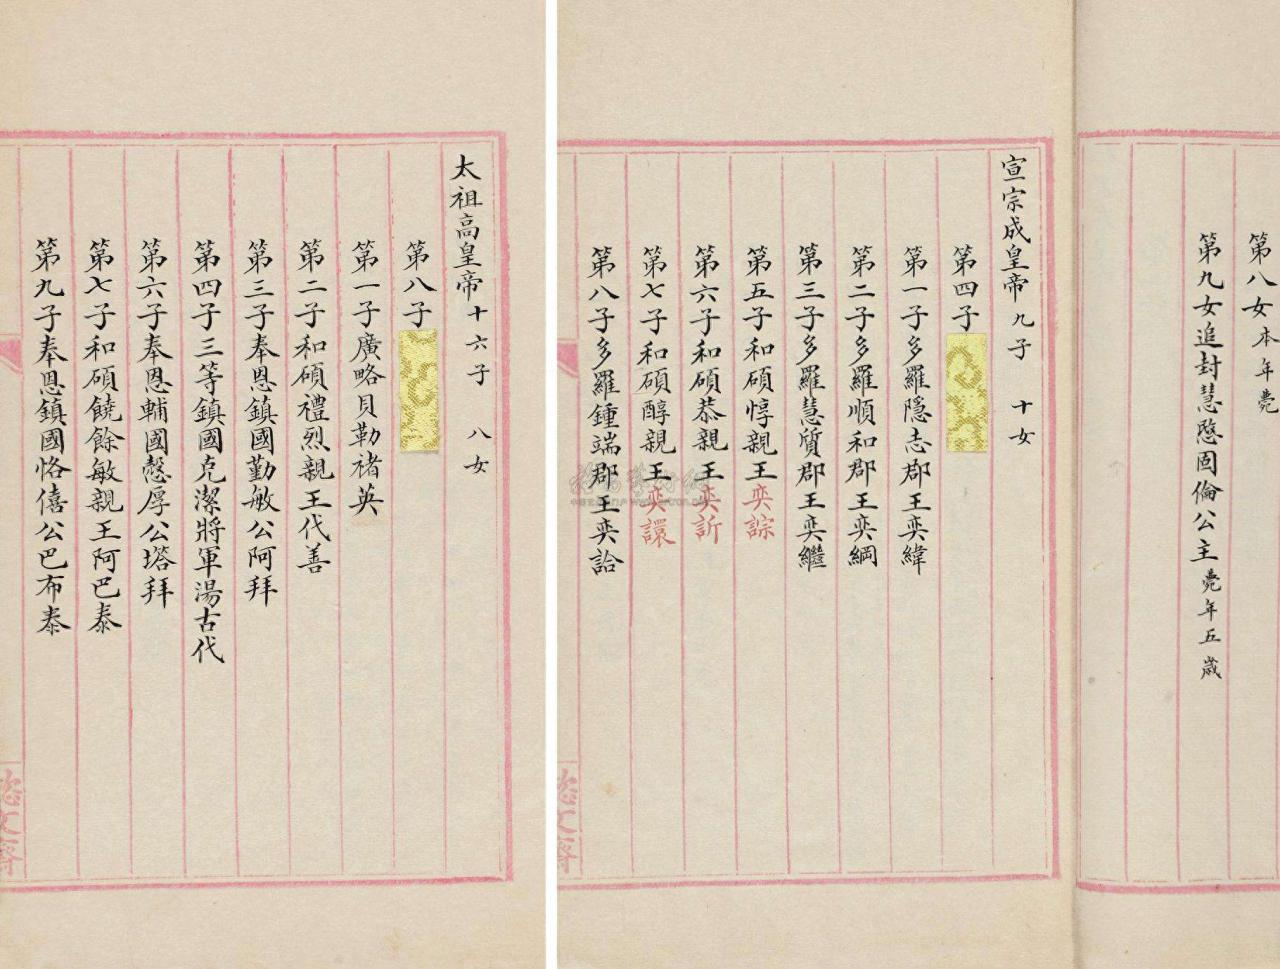 第八女本年薨
第九女追封慧愍固倫公主薨年五歲
宣宗成皇帝九子 十女
第四子
第一子多羅隱志郡王奕緯
第二子多羅順和郡王奕綱
第三子多羅慧質郡王奕繼
第五子和碩惇親王奕誴
第六子和碩恭親王奕訢
第七子和碩醇親王奕譞
第八子多羅鍾端郡王奕詥
太祖高皇帝十六子 八女
第八子
第一子廣略貝勒褚英
第二子和碩禮烈親王代善
第三子奉恩鎮國勤敏公阿拜
第四子三等鎮國克潔將軍湯古代
第六子奉恩輔國愨厚公塔拜
第七子和碩饒餘敏親王阿巴泰
第九子奉恩鎮國恪僖公巴布泰